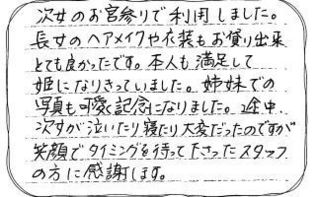 次女のお宮参りで利用しました。
長女のヘアメイクや衣装もお貸り出来
とても良かったです。本人も満足して
姫になりきっていました。姉妹での
写真も可愛く記念になりました。途中、
次女が泣いたり寝たり大変だったのですが
笑顔でタイミングを待って下さったスタッフ
の方に感謝します。